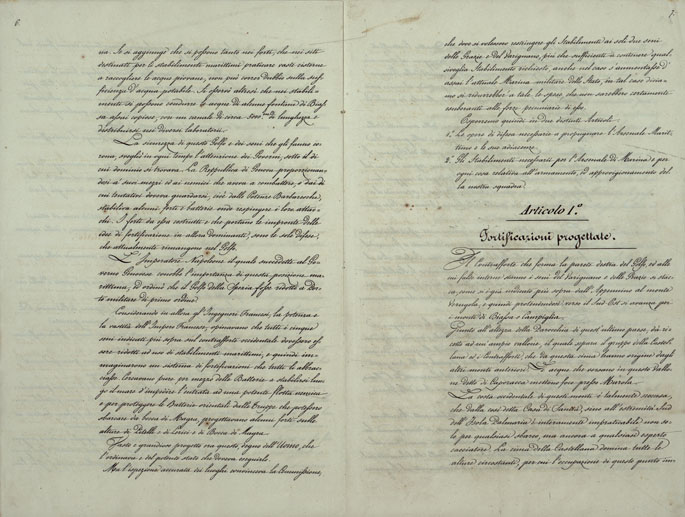 6.
na. Se si aggiunge che si possono tanto nei forti, che nei siti
destinati per lo stabilimento marittimo praticare vaste cisterne
a raccogliere le acque piovane, non può esservi dubbio sulla suf-
ficienza d'acqua potabile. Se poi altresì che nei stabili-
menti si possono condurre le acque di alcune fontane di Bias-
sa assai copiose, con un canale di circa di lunghezza e
distribuirsi nei diversi laboratori.
La sicurezza di questo Golfo e dei seni che gli fanno co-
rona, svegliò in ogni tempo l'attenzione dei Governi, sotto il di
cui dominio si trovava. La Repubblica di Genova proporzionan-
dosi a' suoi mezzi ed ai nemici che aveva a combattere, e dai di
cui tentativi doveva guardarsi, cioè dalle Potenze Barbaresche,
stabiliva alcuni forti e batterie onde respingere i loro attac-
chi. I forti da essa costrutti e che portano le impronte delle
idee di fortificazione in allora dominanti, sono le sole difese,
che attualmente rimangono nel Golfo.
L'Imperatore Napoleone il quale succedette al Go-
verno Genovese conobbe l'importanza di questa posizione ma-
rittima, ed ordinò che il Golfo della Spezia fosse ridotto a Por-
to militare di primo ordine.
Considerando in allora gl'Ingegneri Francesi, la potenza e
la vastità dell'Impero Francese, opinavano che tutti i cinque
seni indicati più sopra sul contrafforte occidentale dovessero es-
sere ridotti ad uso di stabilimenti marittimi, e quindi im-
maginarono un sistema di fortificazioni che tutti li abbrac-
ciasse. Cercavano pure per mezzo delle Batterie a stabilirsi lun-
go il mare d'impedire l'entrata ad una potente flotta nemica
e per proteggere le Batterie orientali dalle Truppe che potessero
sbarcare in bocca di Magra, progettavano alcuni forti sulle
alture di Pitelli e di Lerici e di Bocca di Magra.
Vasto e grandioso progetto era questo, degno dell'Uomo, che
l'ordinava e del potente stato che doveva eseguirlo.
Ma l'ispezione accurata dei luoghi convinceva la Commissione,
7.
che dove si volessero restringere gli Stabilimenti ai soli due seni
delle Grazie e del Varignano, più che sufficienti a contenere qual-
sivoglia Stabilimento richiesto, anche nel caso s'aumentasse d'
assai l'attuale Marina militare dello Stato, in tal caso dicia-
mo si ridurrebbe a tale la spesa che non sarebbe certamente
esuberante alle forze finanziarie di esso.
Esporremo quindi in due distinti Articoli
1.° Le opere di difesa necessarie a propugnare l'Arsenale Marit-
timo e le sue adiacenze.
2.° Gli Stabilimenti necessarii per l'Arsenale di Marina e per
ogni cosa relativa all'armamento, ed approvigionamento del-
la nostra squadra.
Articolo 1°.
Fortificazioni progettate.
Il Contrafforte che forma la parte destra del Golfo, ed alle
cui falde interne stanno i seni del Varignano e delle Grazie si stac-
ca, come si è già veduto più sopra dall'Appennino al monte
Verrugola, e quindi protendendosi verso il Sud-Est si avanza per
i monti di Biassa e Campiglia.
Giunto all'altezza della Parrocchia di quest'ultimo paese, dà ri-
cetto ad un ampio vallone, il quale separa il gruppo della Castel-
lana ed i Contrafforti, che da questa cima hanno origine dagli
altri monti anteriori. Le acque che corrono in questo vallo-
ne detto di Caporacca mettono foce presso Marola.
La costa occidentale di questi monti è talmente scoscesa,
che dalla così detta Casa di Sanità, sino all'estremità Sud
dell'Isola Palmaria è interamente impraticabile non so-
lo per qualsiasi sbarco, ma ancora a qualsiasi esperto
cacciatore. La cima della Castellana domina tutte le
alture circostanti, per cui l'occupazione di questo punto im-